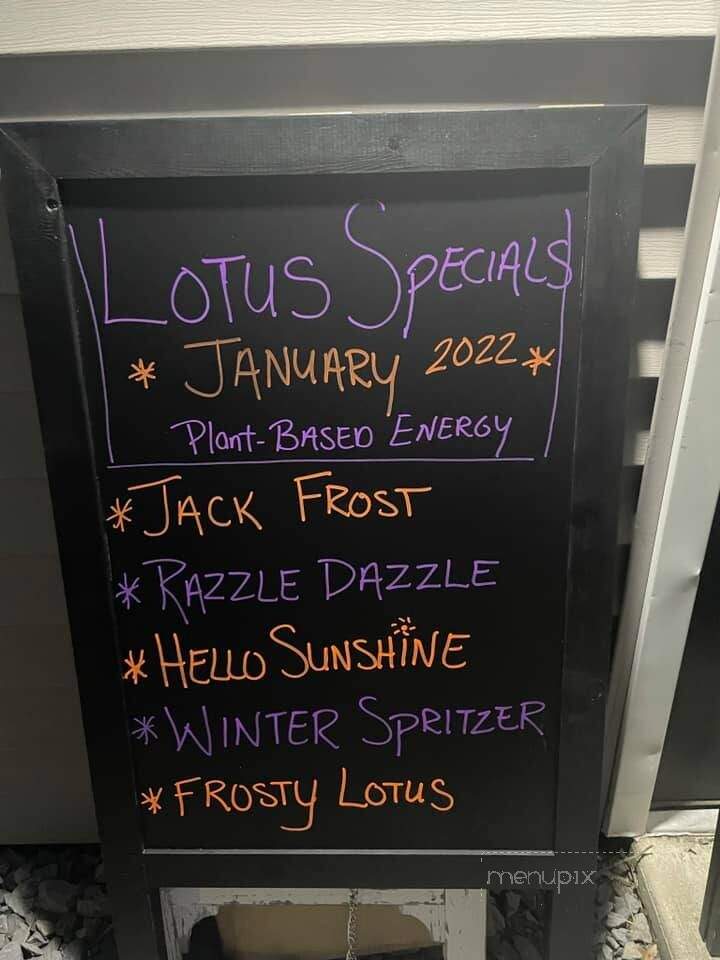 LOTUS SPECIALS
* JANUARY 2022 *
Plant-BASED ENERGY
* JACK FROST
* RAZZLE DAZZLE
* HELLO SUNSHINE
* WINTER SPRITZER
* FROSTY LOTUS
menupix